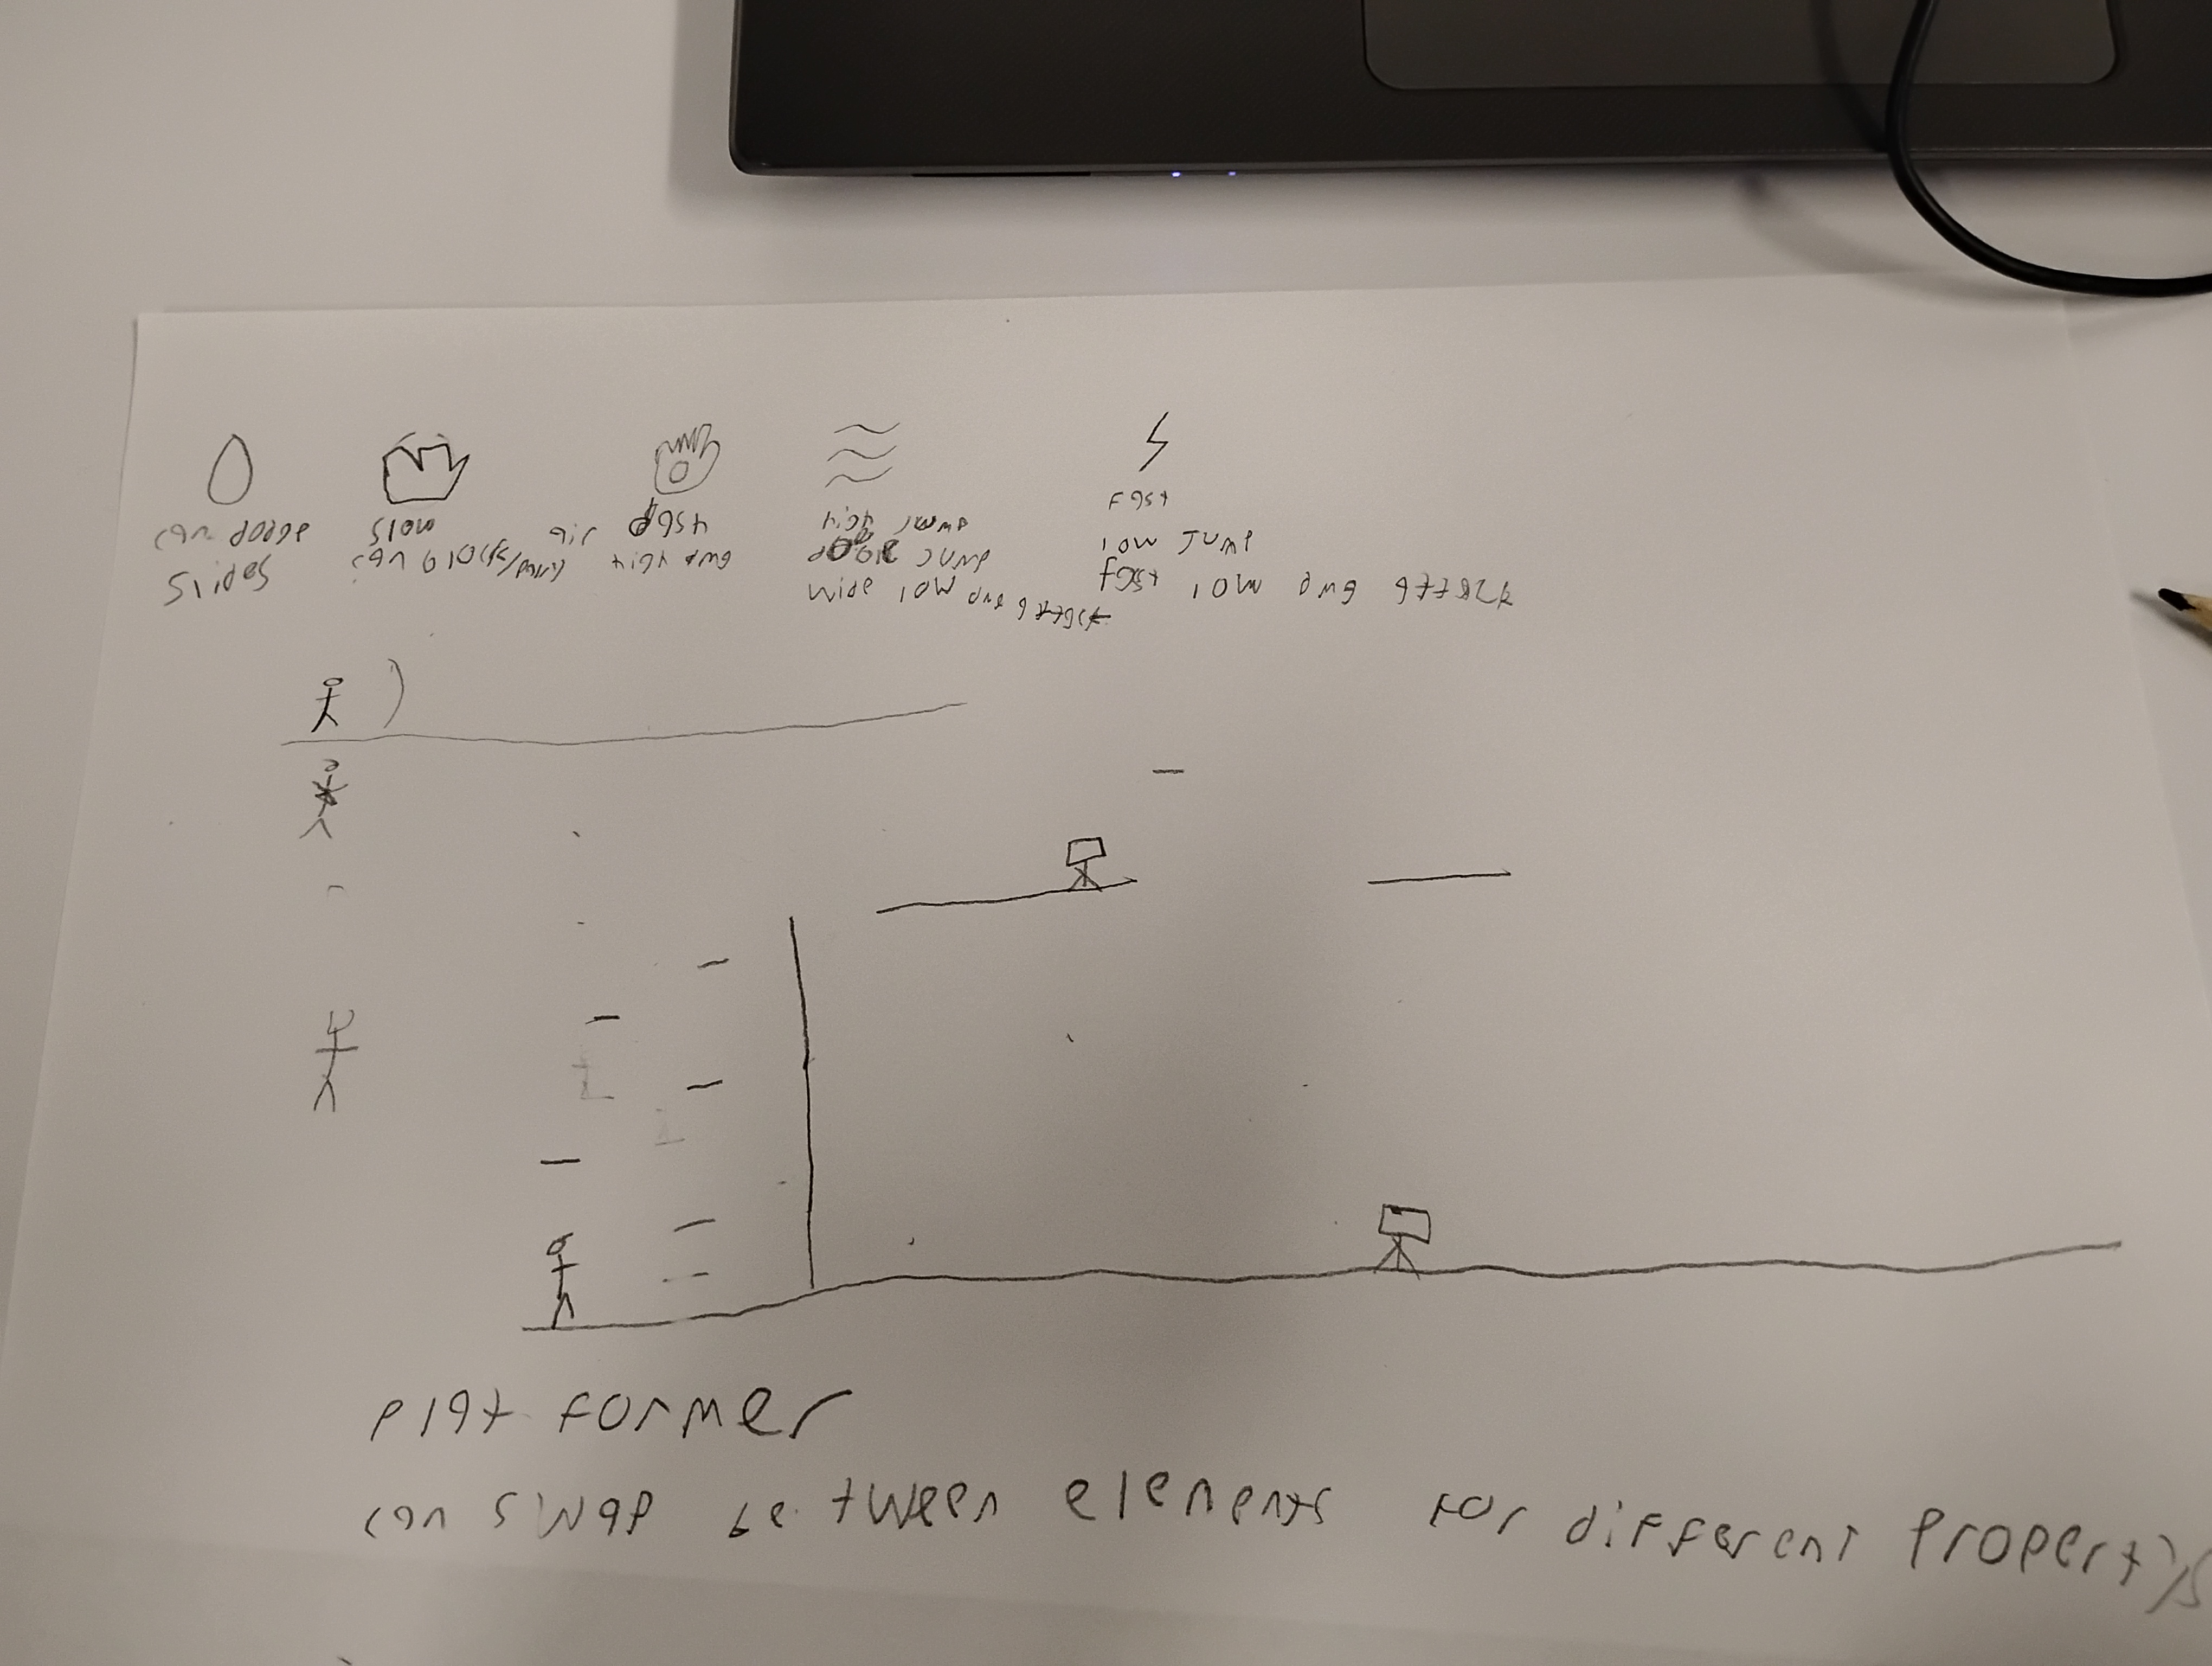 can dodge
slides
slow
can blocks/parry
air dash
high dmg
high jump
double jump
wide low dmg attack
Fast
low Jump
fast low dmg attack
plat former
can swap be tween elements for different property's